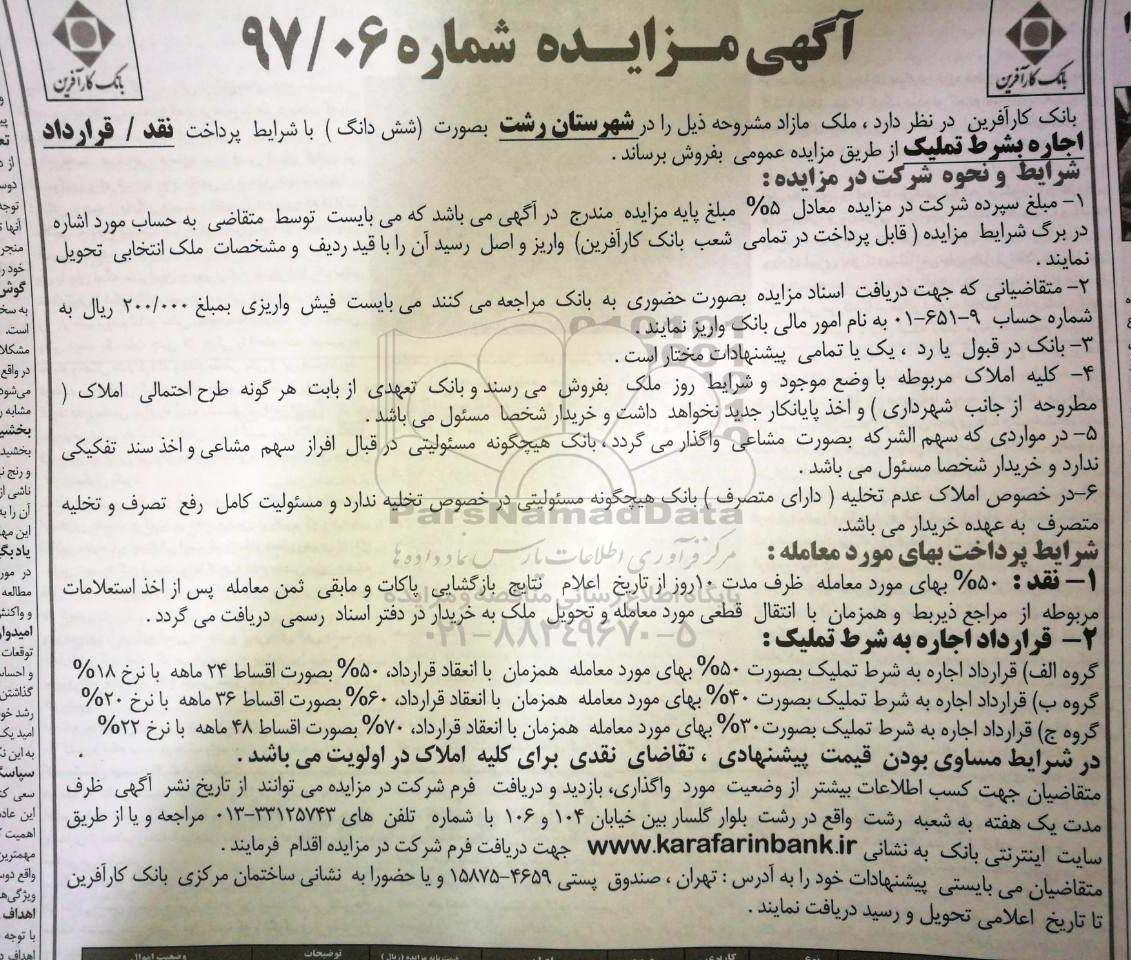 آگهی مزایده شماره ۹۷/۰۶
بانک کارآفرین
بانک کارآفرین
بانک کارآفرین در نظر دارد ، ملک مازاد مشروحه ذیل را در شهرستان رشت بصورت (شش دانگ ) با شرایط پرداخت نقد / قرارداد
اجاره بشرط تملیک از طریق مزایده عمومی بفروش برساند .
شرایط و نحوه شرکت در مزایده :
۱- مبلغ سپرده شرکت در مزایده معادل ۵% مبلغ پایه مزایده مندرج در آگهی می باشد که می بایست توسط متقاضی به حساب مورد اشاره
در برگ شرایط مزایده ( قابل پرداخت در تمامی شعب بانک کارآفرین) واریز و اصل رسید آن را با قید ردیف و مشخصات ملک انتخابی تحویل
نمایند .
۲- متقاضیانی که جهت دریافت اسناد مزایده بصورت حضوری به بانک مراجعه می کنند می بایست فیش واریزی بمبلغ ۲۰۰/۰۰۰ ریال به
شماره حساب ۹-۶۵۱-۰۱ به نام امور مالی بانک واریز نمایند .
۳- بانک در قبول یا رد ، یک یا تمامی پیشنهادات مختار است .
۴- کلیه املاک مربوطه با وضع موجود و شرایط روز ملک بفروش می رسند و بانک تعهدی از بابت هر گونه طرح احتمالی املاک (
مطروحه از جانب شهرداری ) و اخذ پایانکار جدید نخواهد داشت و خریدار شخصا مسئول می باشد .
۵- در مواردی که سهم الشرکه بصورت مشاعی واگذار می گردد ، بانک هیچگونه مسئولیتی در قبال افراز سهم مشاعی و اخذ سند تفکیکی
ندارد و خریدار شخصا مسئول می باشد .
۶-در خصوص املاک عدم تخلیه ( دارای متصرف ) بانک هیچگونه مسئولیتی در خصوص تخلیه ندارد و مسئولیت کامل رفع تصرف و تخلیه
متصرف به عهده خریدار می باشد.
ParsNamadData
مرکز فرآوری اطلاعات پارس نماد داده ها
شرایط پرداخت بهای مورد معامله :
۱- نقد : ۵۰% بهای مورد معامله ظرف مدت ۱۰روز از تاریخ اعلام نتایج بازگشایی پاکات و مابقی ثمن معامله پس از اخذ استعلامات
پایگاه اطلاع رسانی مناقصه و مزایده
مربوطه از مراجع ذیربط و همزمان با انتقال قطعی مورد معامله و تحویل ملک به خریدار در دفتر اسناد رسمی دریافت می گردد .
۰۲۱-۸۸۳۴۹۶۷۰-۵
۲- قرارداد اجاره به شرط تملیک :
گروه الف) قرارداد اجاره به شرط تملیک بصورت ۵۰% بهای مورد معامله همزمان با انعقاد قرارداد، ۵۰% بصورت اقساط ۲۴ ماهه با نرخ ۱۸%
گروه ب) قرارداد اجاره به شرط تملیک بصورت ۴۰% بهای مورد معامله همزمان با انعقاد قرارداد، ۶۰% بصورت اقساط ۳۶ ماهه با نرخ ۲۰%
گروه ج) قرارداد اجاره به شرط تملیک بصورت۳۰% بهای مورد معامله همزمان با انعقاد قرارداد، ۷۰% بصورت اقساط ۴۸ ماهه با نرخ ۲۲%
در شرایط مساوی بودن قیمت پیشنهادی ، تقاضای نقدی برای کلیه املاک در اولویت می باشد .
متقاضیان جهت کسب اطلاعات بیشتر از وضعیت مورد واگذاری، بازدید و دریافت فرم شرکت در مزایده می توانند از تاریخ نشر آگهی ظرف
مدت یک هفته به شعبه رشت واقع در رشت بلوار گلسار بین خیابان ۱۰۴ و ۱۰۶ با شماره تلفن های ۳۳۱۲۵۷۴۳-۰۱۳ مراجعه و یا از طریق
سایت اینترنتی بانک به نشانی www.karafarinbank.ir جهت دریافت فرم شرکت در مزایده اقدام فرمایند .
متقاضیان می بایستی پیشنهادات خود را به آدرس : تهران ، صندوق پستی ۴۶۵۹-۱۵۸۷۵ و یا حضورا به نشانی ساختمان مرکزی بانک کارآفرین
تا تاریخ اعلامی تحویل و رسید دریافت نمایند .